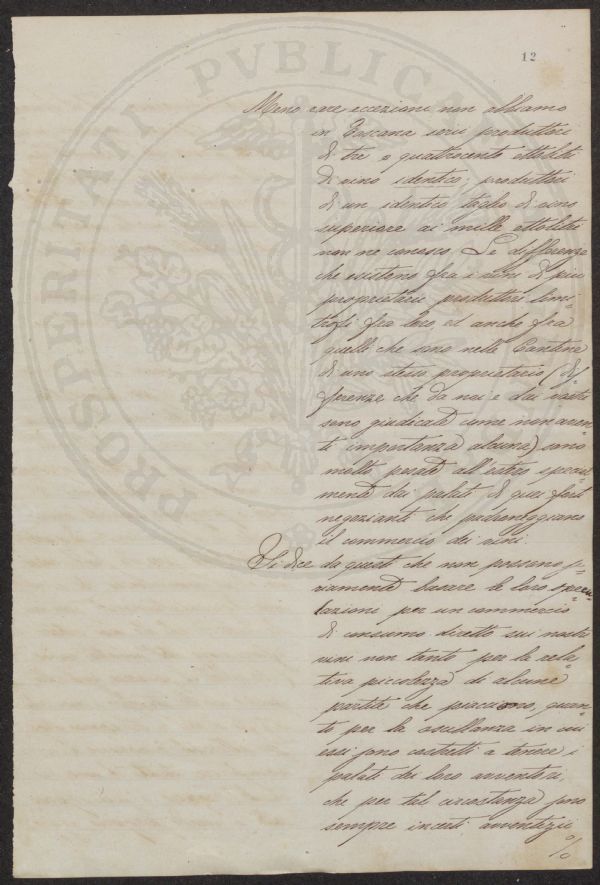 12
Meno rare eccezioni non abbiamo
in Toscana seri produttori
di tre o quattrocento ettolitri
di vino identico; produttori
di un identico taglio di vino
superiore ai mille ettolitri
non ne conosco. Le differenze
che esistono fra i vini di più
proprietarii produttori limi-
trofi fra loro, ed anche fra
quelli che sono nelle Cantine
di uno stesso proprietario (dif-
ferenze che da noi e dai nostri
sono giudicate come non aven-
ti importanza alcuna) sono
molto pesate all'estero special-
mente dai palati di quei forti
negozianti che padroneggiano
il commercio dei vini.
Si dice da questi che non possono
seriamente basare le loro specu-
lazioni per un commercio
di consumo diretto sui nostri
vini non tanto per la rela-
tiva piccolezza di alcune
partite che piacciono, quan-
to per la oscillanza in cui
essi sono costretti a tenere i
palati dei loro avventori,
che per tal circostanza sono
sempre incerti avventizii
%
PROSPERITATI PVBLICAE